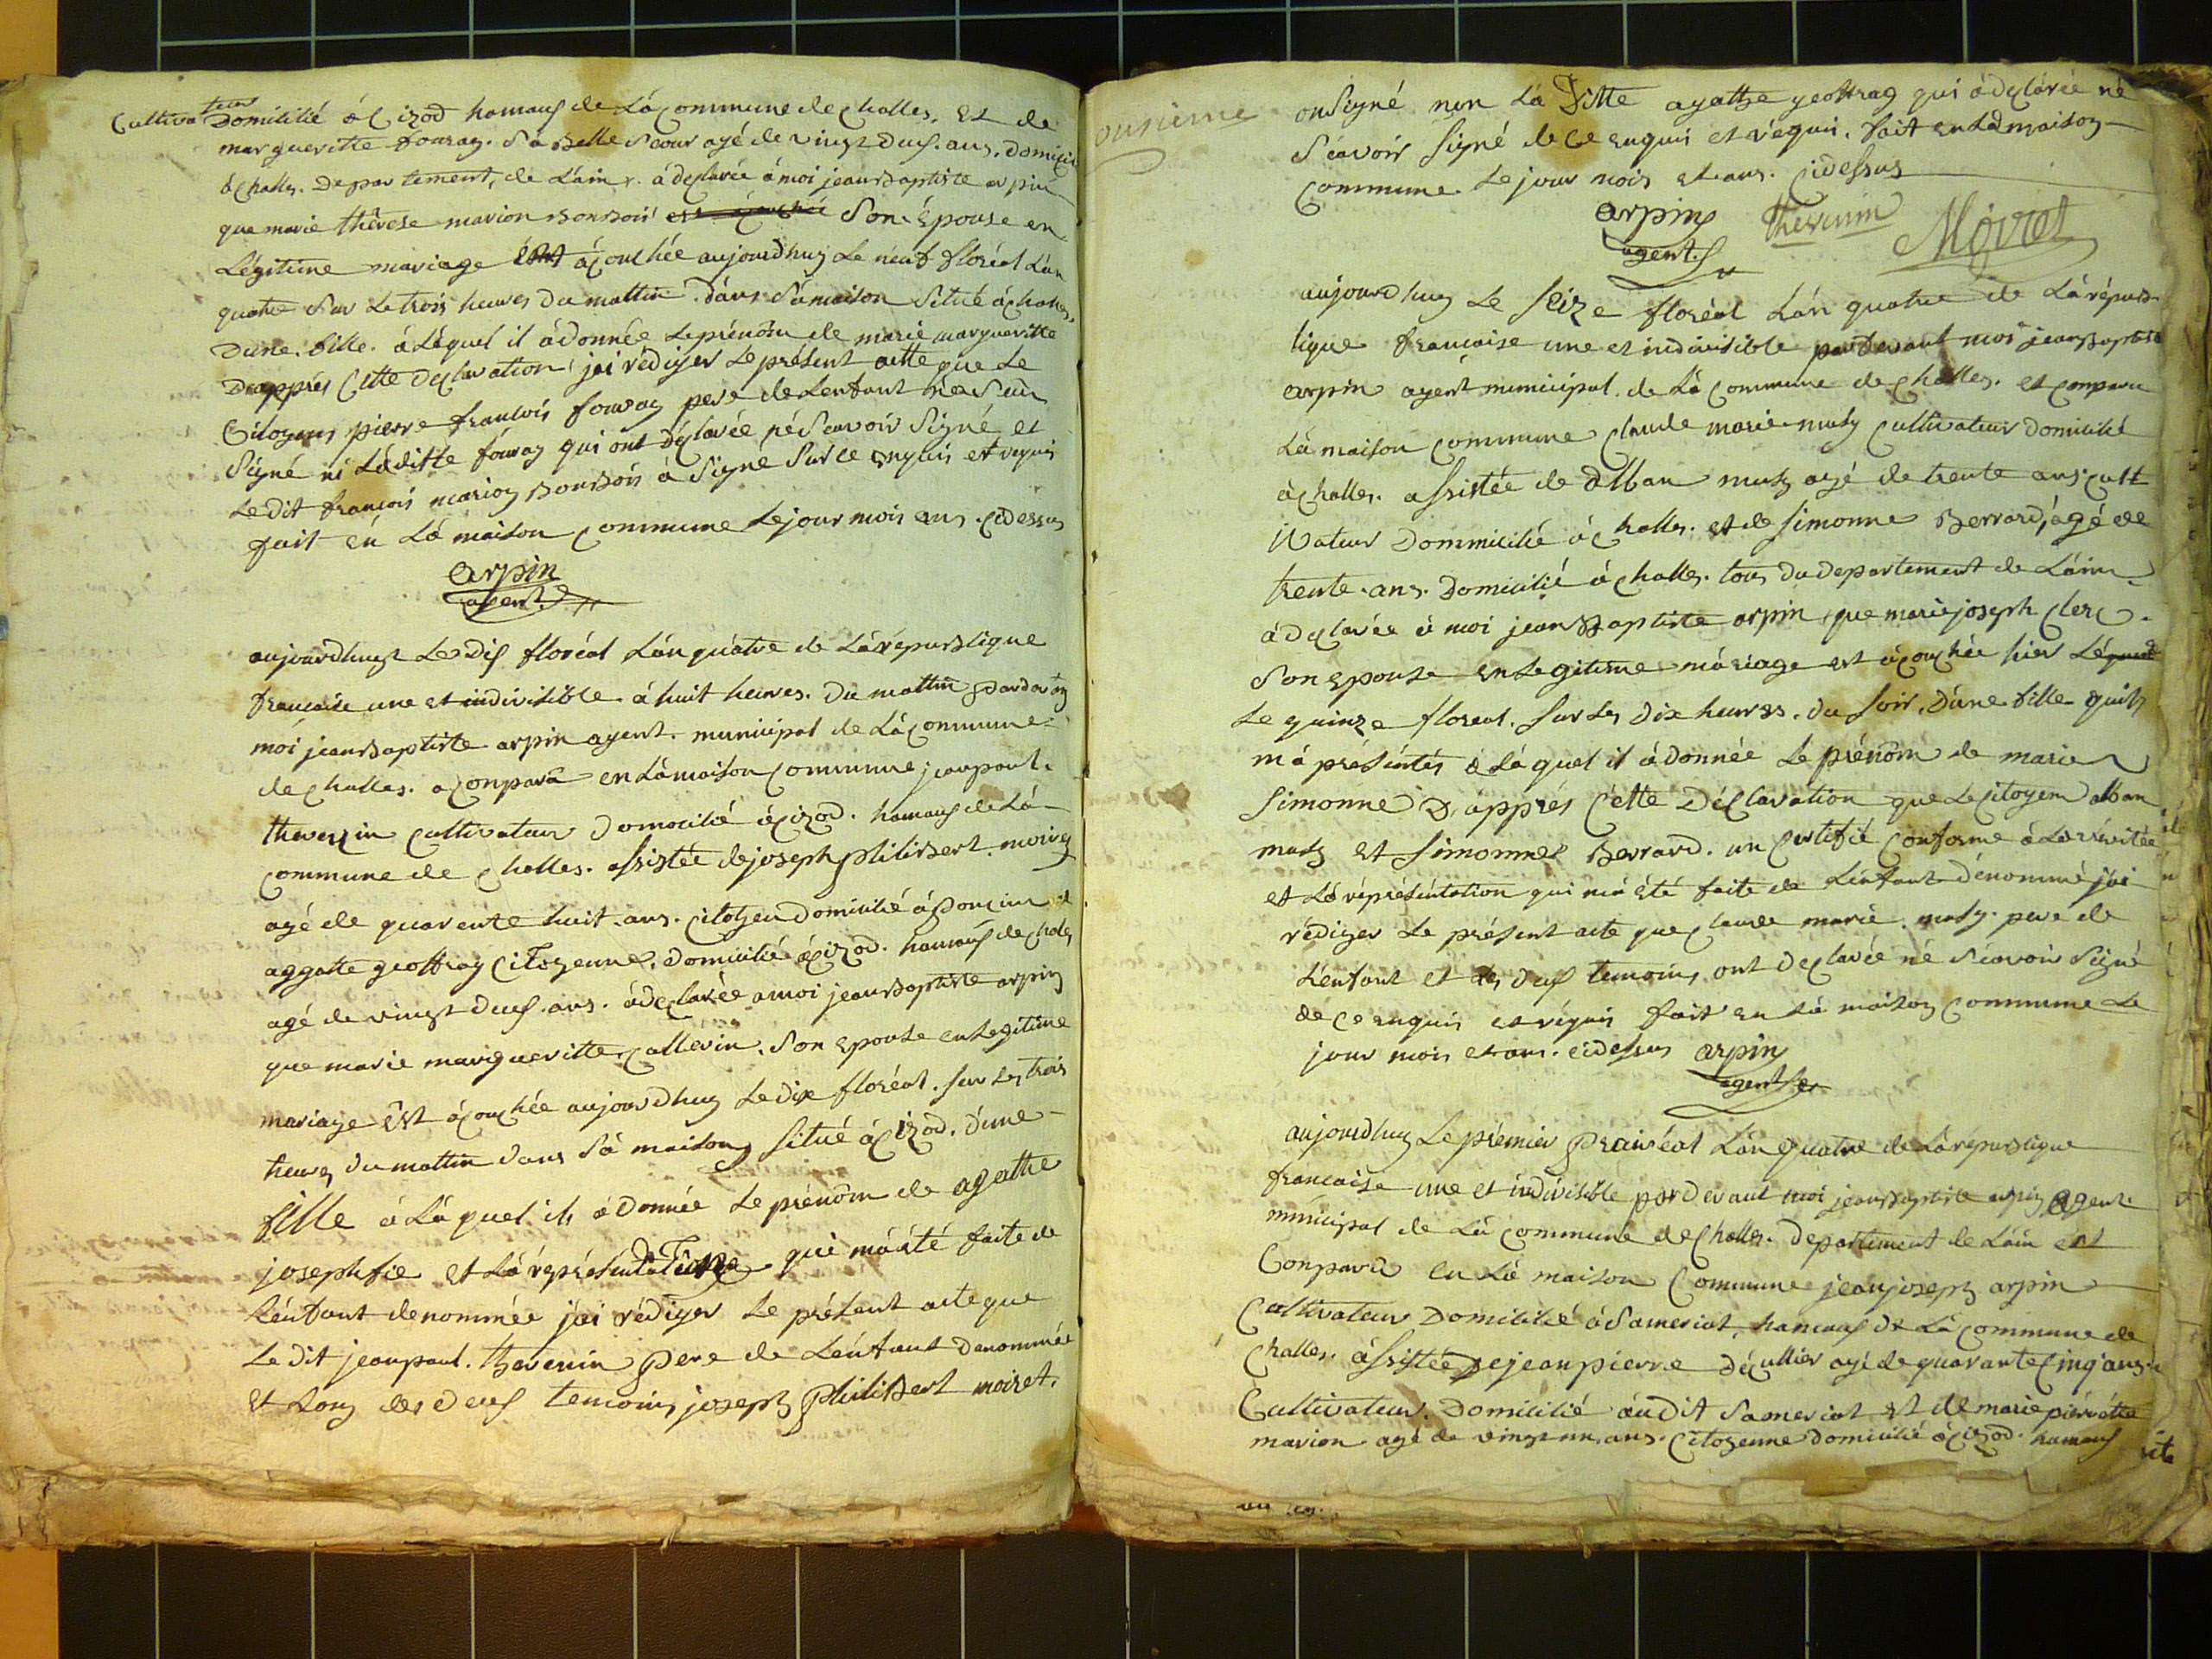 Cultivateur Domicilié á Cizod hamauf de Lácommune de Challes. Et de
margueritte fouray. Sa Belle Seour agé de vingt Deuf. ans. Domicié
á Challes. Departement, de L'áin. á déClarée á moi jean Baptiste arpin
que marie thérese marion Bonbois est acouchée Son. Epouse en
Légitime mariage est ácouchée aujourdhuy Le neuf floréal L'an
quatre Sur Le trois heures Du mattin. dans Sá maison Situé á Challes.
Dune. fille. á Láquel il á donnée Le prénóm de marie margueritte
Dapprés Cette déClaration jái rédiger Le présent actte que Le
Citoyens pierre francois fouray pere de Lenfant
Signé ni Laditte fouray qui ont déClarée né Scavoir Signé et
Le Dit francois marion Bonbois á Signé Sur Ce enquis et requis
fait en Lá maison Commune Le jour mois ans. Cidessus
arpin
agent
aujourdhuy Le Dif floréal L'án quátre de Lárépublique
francaise une et indivisible á huit heures. Du mattin pardevan
mói jean Baptiste arpin agent. municipal de Lácommune
de Challes. a Conparu en Lámaison Commune jean paul.
thevenin Cultivateur Domicilié á Cizod. hamauf de Lá
Commune de Challes. assistée de joseph philibert. moiret
agé de quarente huit. ans. Citoyen Domicilié á Poncin et
aggatte geoffray Citoyenne. Domicilié á Cizod. hamauf de Challes
agé de vingt Deuf. ans. á déClarée a moi jean Baptiste arpin
que marie margueritte Callevin. Son epouse en Légitime
mariage est ácouchée aujourdhuy Le Dix floréal. Sur Les trois
heures du mattin dans Sá maison Situé á Cizod. d'une
fille á Láquel il á Donnée Le prénóm de agathe
josephte et Lá représentation qui má été faite de
Lénfant denommée jái rédiger Le présent acte que
Le dit jean paul. thevenin Pere de Lénfant Denommée
et Lons des Deuf temoins joseph Philibert moiret.
onsieme
ont Signé non Lá Ditte agathe geoffray qui á déClarée né
Scavoir Signé de Ce enquis et réquis. fait en Lámaison
Commune. Le jour mois et ans. Cidessus
arpin thevenin Moiret
agent
aujourdhuy Le Seize floréal L'án quatre de Lárépub
lique francaise une et indivisible pardevant moi jean Baptiste
arpin agent municipal. de Lá Commune de Challes. et Conparu
Lá maison Commune Claude marie muty Cultivateur Domicilié
á Challes. assistée de alban muty agé de trente ans Cult
ivateur Dommicilié á Challes. et de Simonne Berrard, ágé de
trente. ans. Domicilié á Challes. tous du departement de L'áin.
á déClarée á moi jean Baptiste arpin que marie joseph Clerc.
Son epouse en Legitime máriage est ácouchée hier
Le quinze floreal. Sur Les Dix heures. du Soir. D'une fille quil
m'á présentés á Láquel il á donnée Le prénóm de marie
Simonne D'áppres Cette DéClaration que Le Citoyen alban
muty et Simonne Berrard. un Certifié Conforme á La véritée
et Lá répréséntation qui má été faite de Lénfant dénommé jái
rédiger Le présent acte que Claude marie. muty. pere de
Lénfant et des Deuf temoins ont déClarée né Scavoir Signé
dé Ce enquis et réquis fait en Lá maison Commune Le
jour mois et ans. cidessus arpin
agent
aujourdhuy Le prémier Prairéal L'án quatre de Lárépublique
francaise une et indivisible pardevant moi jean Baptiste arpin agent
municipal de Lá Commune de Challes. Département de L'áin est
Conparu en Lá maison Commune jean joseph arpin
Cultivateur Domicilié á Sameriat, hamauf de Lá Commune de
Challes. ássistée de jean pierre déCullier agé de quarante Cinq ans
Cultivateur. Domicilié áudit Sameriat et de marie piérrétte
marion agé de vingt un. ans. Citoyenne Domicilié á Cizod. hamauf